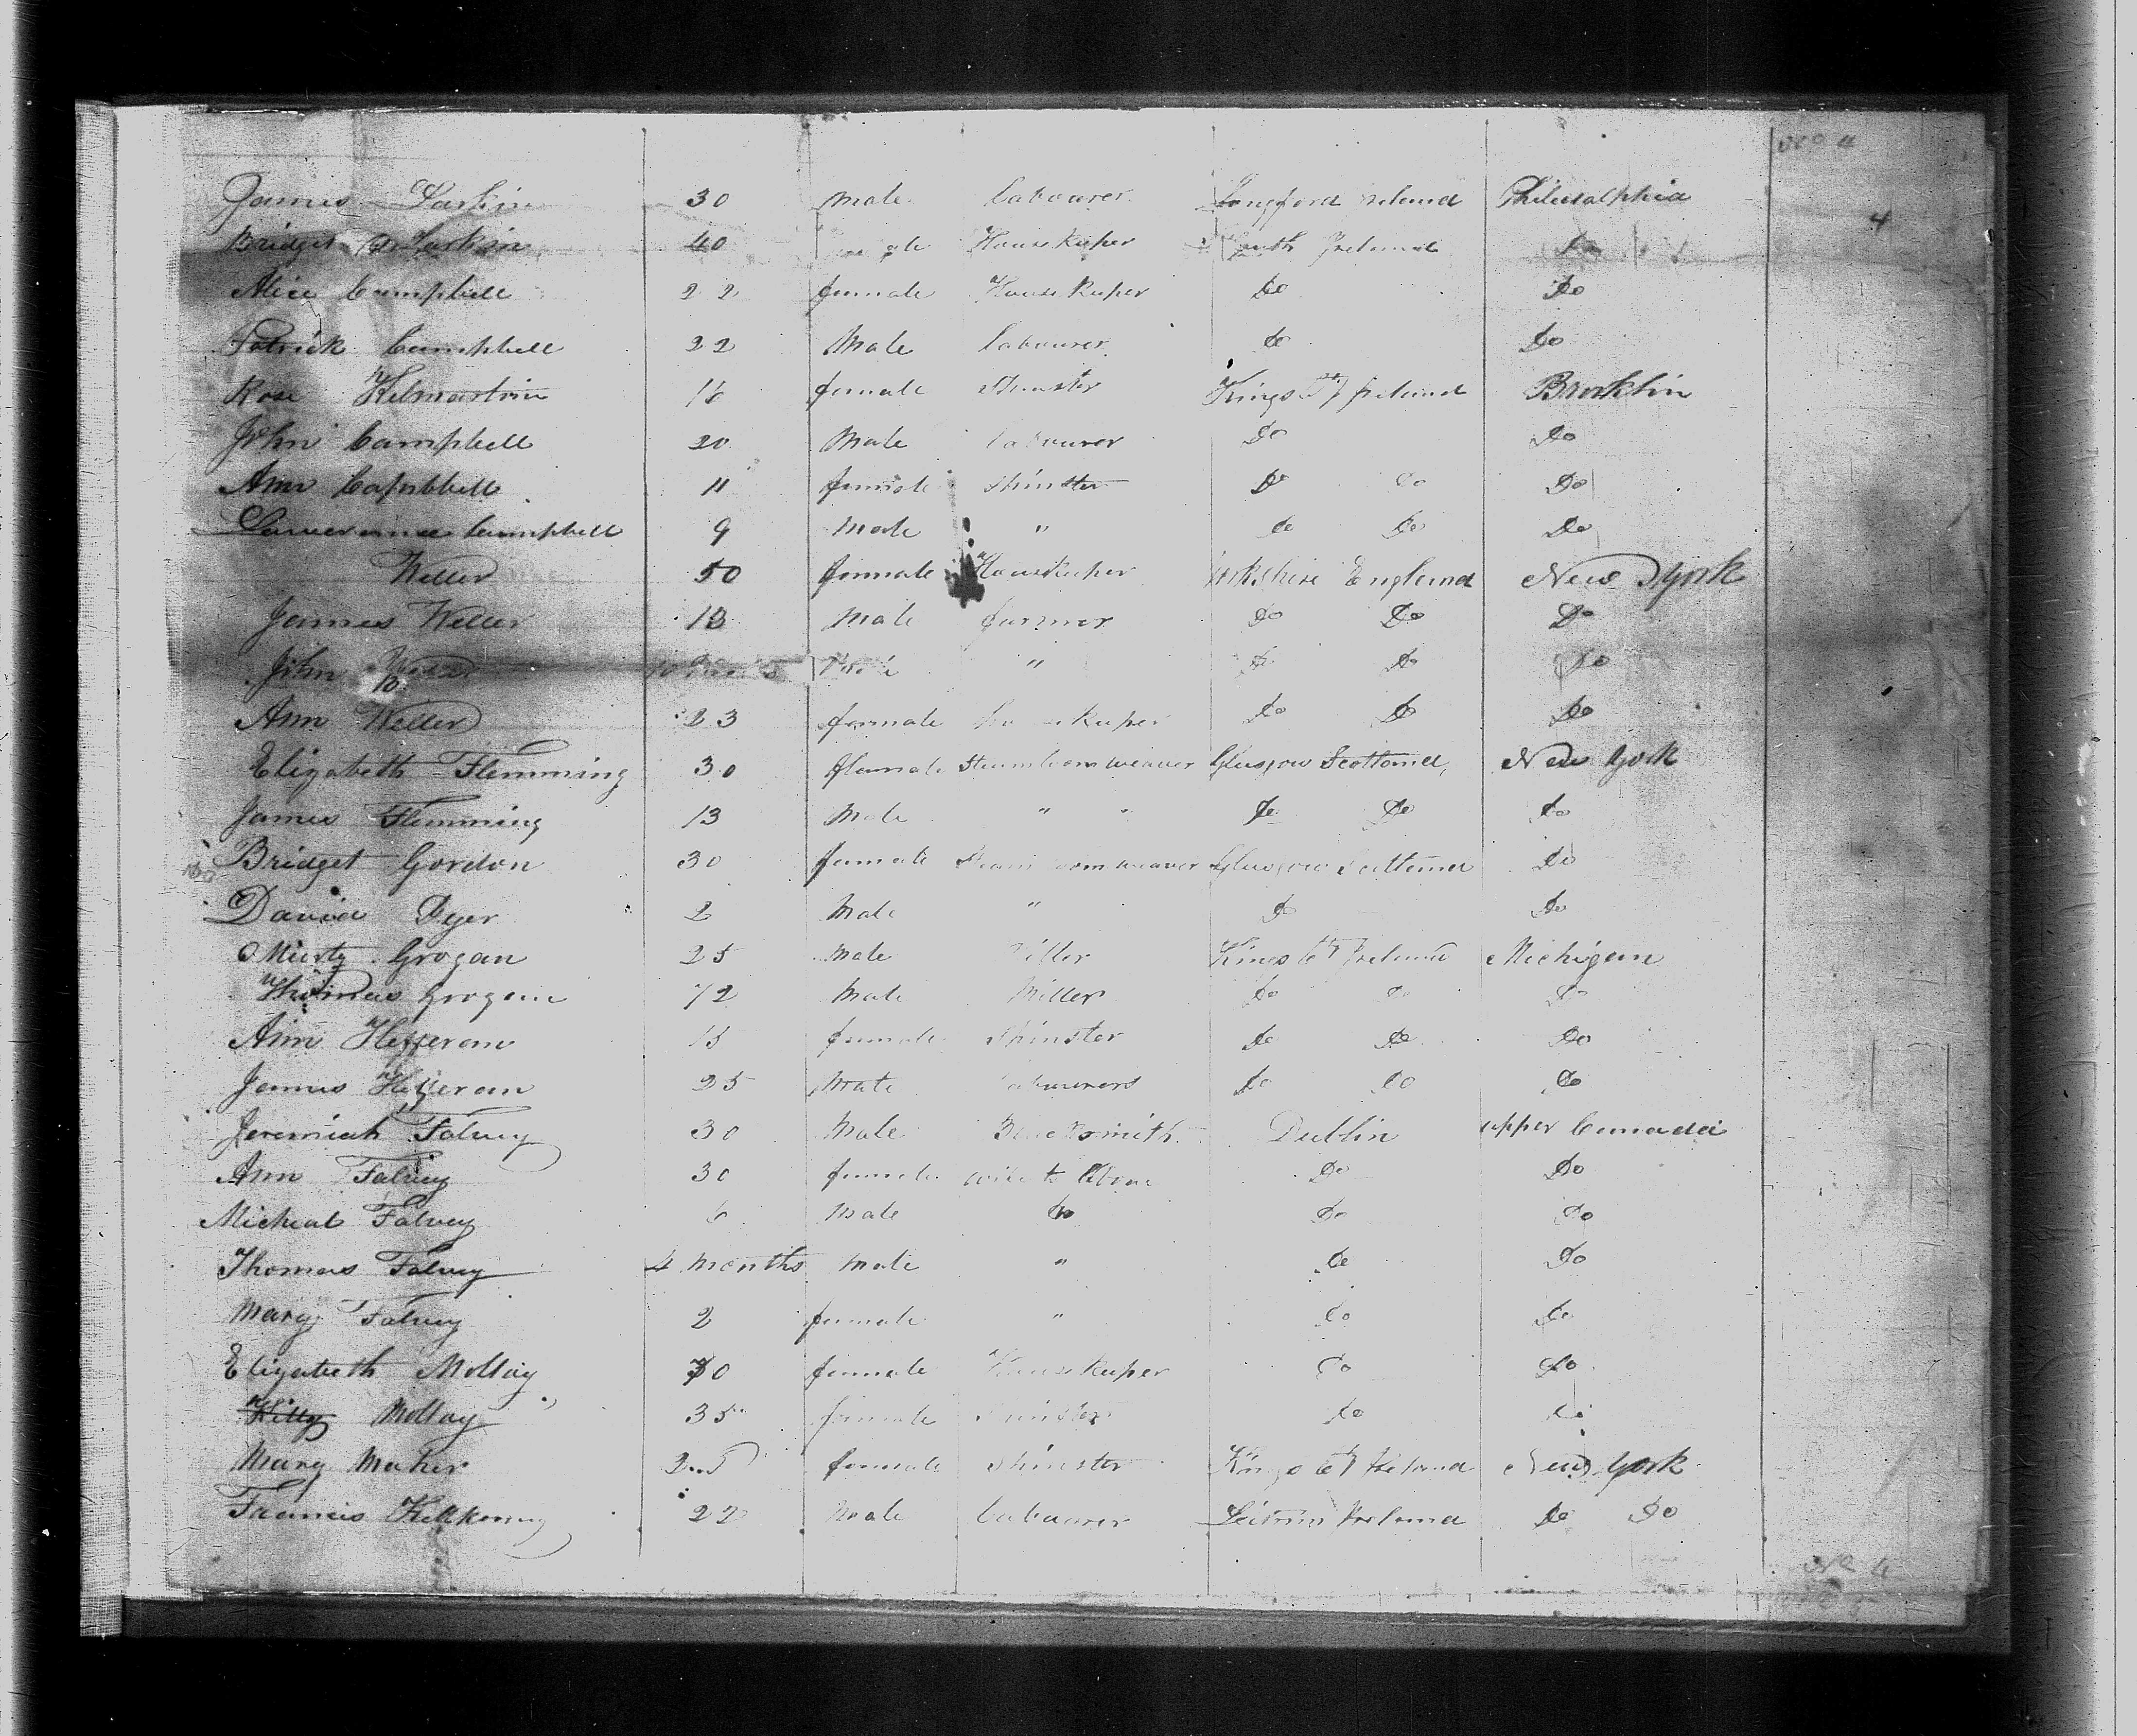 No 4
James Larkin 30 male labourer Longford Ireland Philadalphia
4
Bridget Larkin 40 HouseKeper Louth Ireland Do
Alice Campbell 22 female HouseKeper Do Do
Patrick Campbell 22 Male labourer Do Do
Rose Kilmartin 16 female Spinster Kings Ct Ireland Brooklin
John Campbell 20 Male labourer Do Do
Ann Campbell 11 female Spinster Do Do Do
Lawerance Campbell 9 Male " Do Do Do
Weller 50 female HouseKeper Yorkshire England New York
James Weller 13 Male farmer Do Do Do
John " Do Do Do
Ann Weller 23 female Keper Do Do Do
Elizabeth Flemming 30 female Steamloom weaver Glasgow Scotland, New York
James Flemming 13 Male " " Do Do Do
Bridget Gordon 30 female Steam loom weaver Glasgow Scotland Do
David Dyer 2 Male " Do Do
Murty Grogan 25 Male Miller Kings Ct Ireland Michigan
Thomas Grogan 12 Male Miller Do Do Do
Ann Hefferan female Spinster Do Do Do
James Hefferan 25 Male labourers Do Do Do
Jeremiah Falvey 30 Male Blacksmith Dublin upper Canada
Ann Falvey 30 female wife to Above Do Do
Micheal Falvey 6 Male Do Do Do
Thomas Falvey 4 Months Male " Do Do
Mary Falvey 2 female " Do Do
Elizabeth Molloy 70 female HouseKeper Do Do
Kitty Molloy 35 female Spinster Do Do
Mary Maher 25 female Spinster Kings Ct Ireland New York
Francis 22 Male labourer Ireland Do Do
No 4